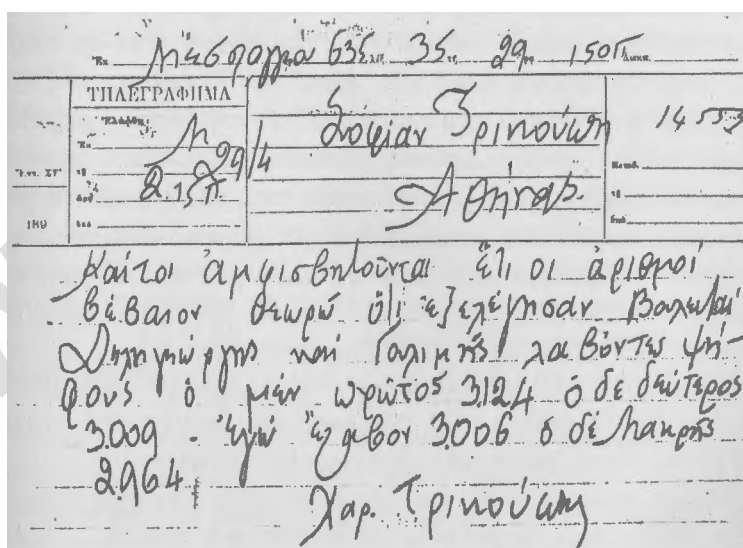 Μεσολόγγι 635 35 29 150Π
ΤΗΛΕΓΡΑΦΗΜΑ
Σοφίαν Τρικούπη
14553
Μ
29/4
2.15 Π
Ἀθήνας.
189
Καίτοι ἀμφισβητοῦνται ἔτι οἱ ἀριθμοί
βέβαιον θεωρῶ ὅτι ἐξελέγησαν Βάλβης
Δηληγιώργης καί Γουλιμῆς λαβόντες ψή-
φους ὁ μέν πρῶτος 3124 ὁ δέ δεύτερος
3.009 - Ἐγώ ἔλαβον 3.006 ὁ δέ Μακρῆς
2.964
Χαρ. Τρικούπης